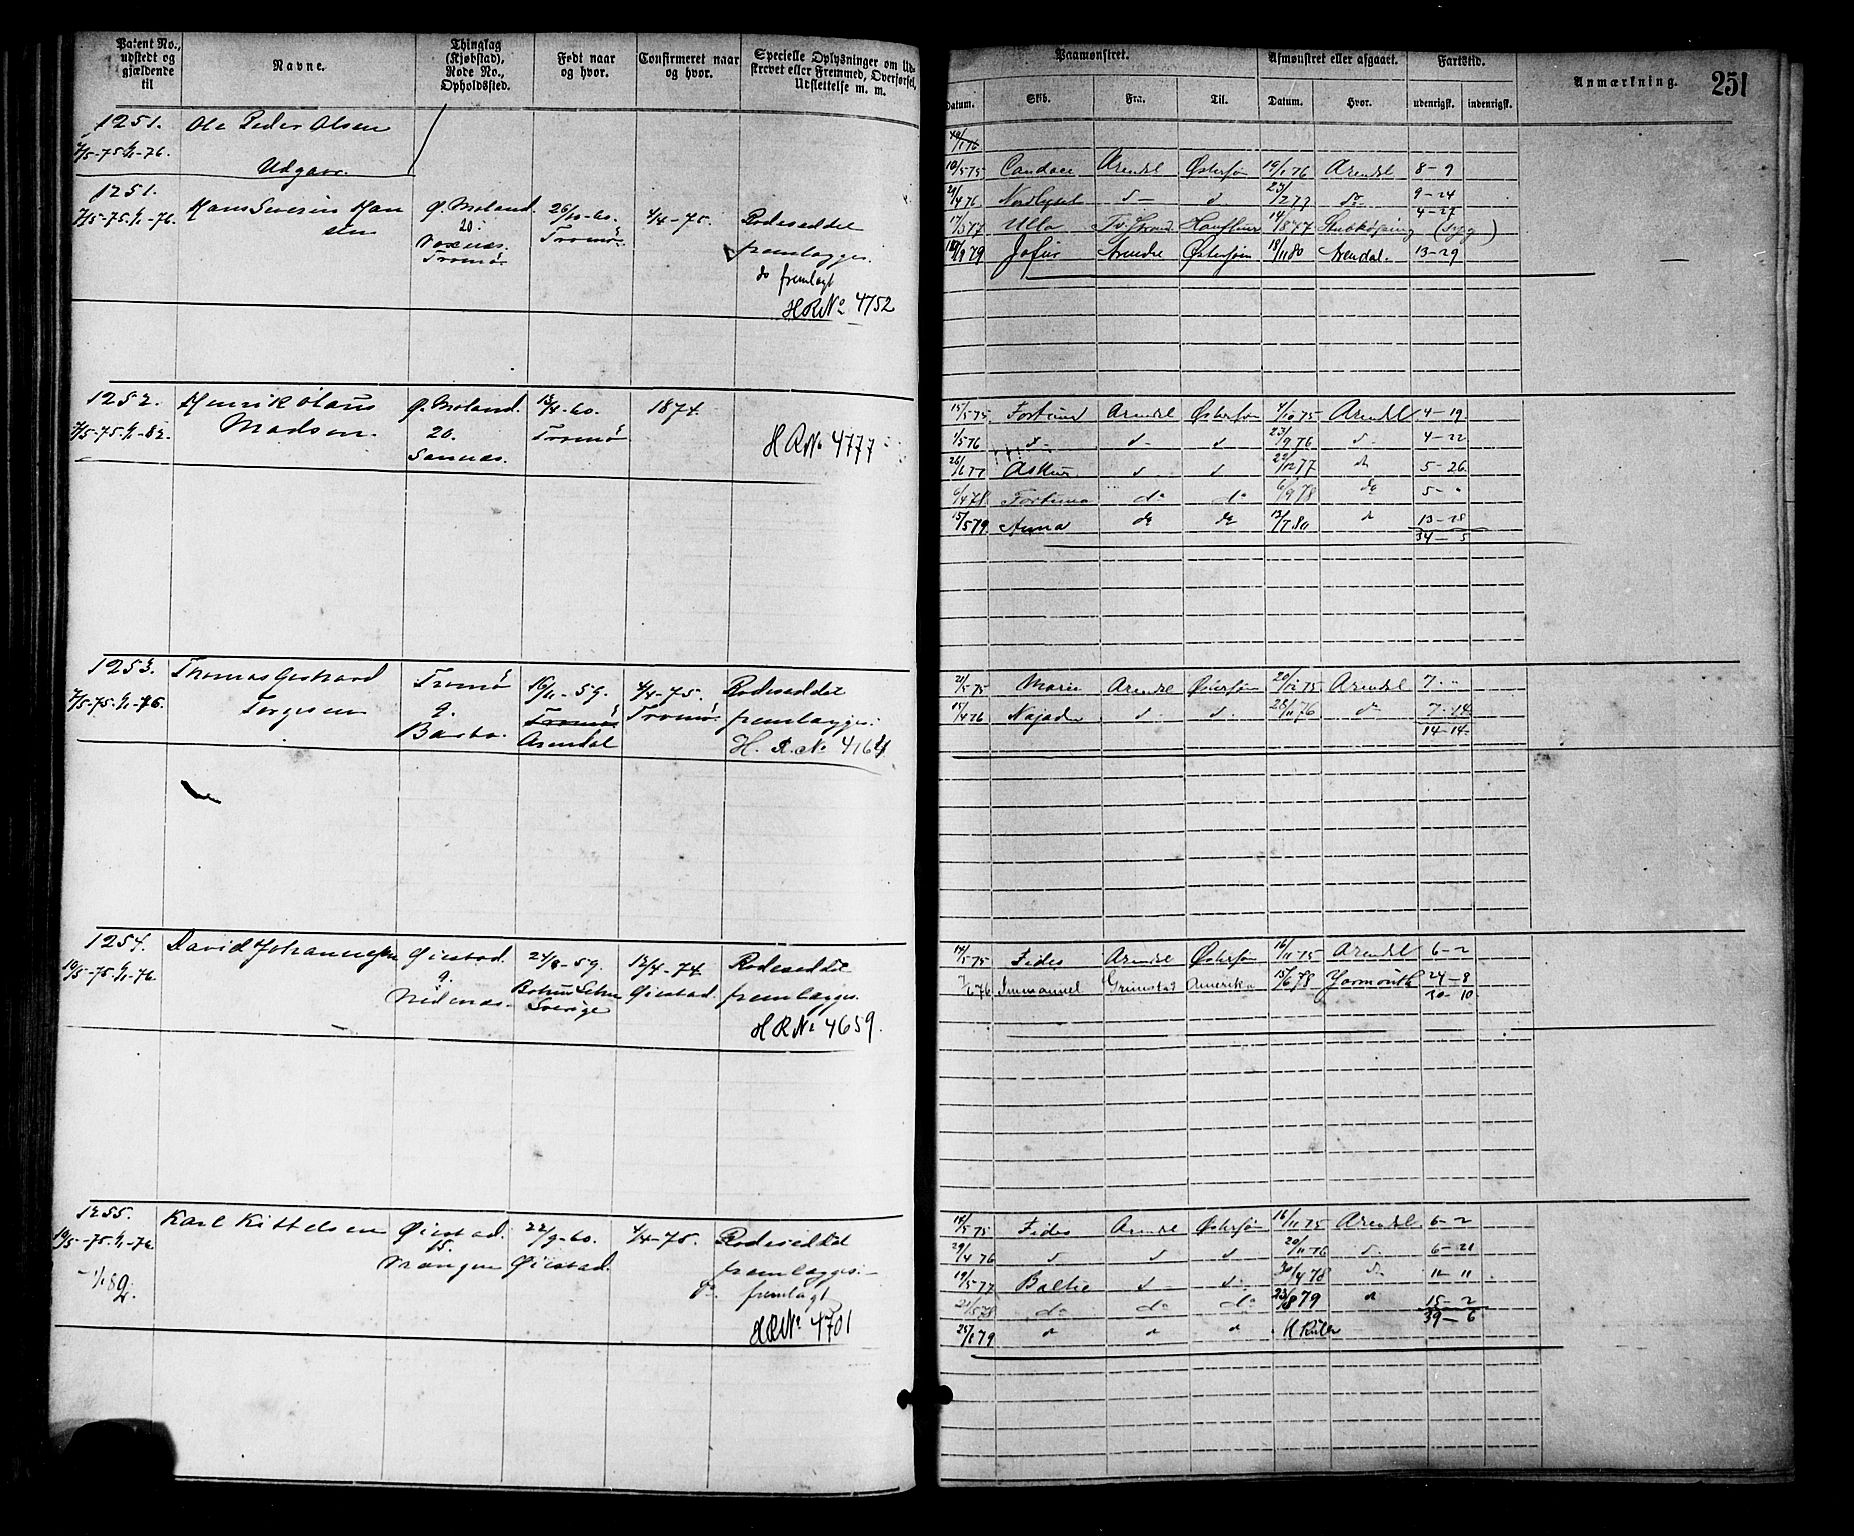 Patent No., udstedt og gjældende til
Navne.
Thinglag (Kjøbstad), Rode No., Opholdssted.
Født naar og hvor.
Confirmeret naar og hvor.
Specielle Oplysninger om Udskrevet eller Fremmed, Overførsel, Udslettelse m. m.
Paamønstret.
Afmønstret eller afgaaet.
Fartstid.
Anmærkning.
251
Datum.
Skib.
Fra.
Til.
Datum.
Hvor.
udenrigsk.
indenrigsk.
1251.
Ole Peder Olsen
7/5-75-1/1-76.
Udgaar.
1251.
Hans Severin Hansen
7/5-75-1/1-76.
Ø. Moland.
20.
Tromø.
26/10-60.
Tromø
4/4-75.
Rodeseddel
fremlægges.
do fremlagt
H R No 4752
10/5 75 Candace Arendl Østersjøn 19/1 76 Arendl 8-9
29/4 76. Nordlyset d- d 23/2 77 do. 9-24
4-27
17/5 77 Ulla 14/8 47 Stubkjøbing (Syg)
9 79 Arendl Østersjøen 18/11 80 Arendal. 13-29
1252.
Henrik Olaus
Madsen.
7/5-75-1/1-82.
Ø. Moland.
20.
Tromø
1874.
H R No 4777
15/5 75 Fortuna Arendl Østersjøn 7/10 75 Arendl 4-19.
1/5 76 d- d- d 23/9 76 d- 4-22
26/6 77 d d 29/12 77 do 5-26
6/4 78. Fortuna do do 6/9 78 do 5-"
15/5 79. Anna do do 13/7 80 do 13-28
34-5
1253.
Thomas Gerhard
Tergesen
7/5-75-1/1-76.
Tromø
9.
Barbo.
16/11-59.
Tromø
Arendal
4/4-75.
Tromø.
Rodeseddel
fremlægges.
H. R. No 4164
21/5 75 Marie Arendl Østersjøn 20/12 75 Arendl 7-"
15/4 76 Najaden d- d- 28/11 76 do 7-14
14-14
1254.
David Johannesen
10/5-75-1/1-76.
Øiestad.
9.
Nedenæs.
24/8-59.
Sverige
12/4-74
Øiestad.
Rodeseddel
fremlægges.
H R No 4659.
14/5 75 Fides Arendl Østersjøn 16/11 75 Arendl 6-2
7/6 76 Immanuel Grimstad Amerika 15/6 78 Yarmouth 24-8
30-10
1255.
Karl Kittelsen
10/5-75-1/1-76
-1/1 82.
Øiestad.
15.
22/9-60.
Øiestad.
4/4-75.
Rodeseddel
fremlægges.-
do fremlagt
H R No 4701
14/5 75 Fides Arendl Østersjøn 16/11 75 Arendl 6-2
29/4 76 d d d 20/11 76 d- 6-21
19/5 77 Baltic d- d- 30/4 78 do 11-11
21/5 78 do do do 23/8 79 do 15-2
39-6
25/ 79 do do do